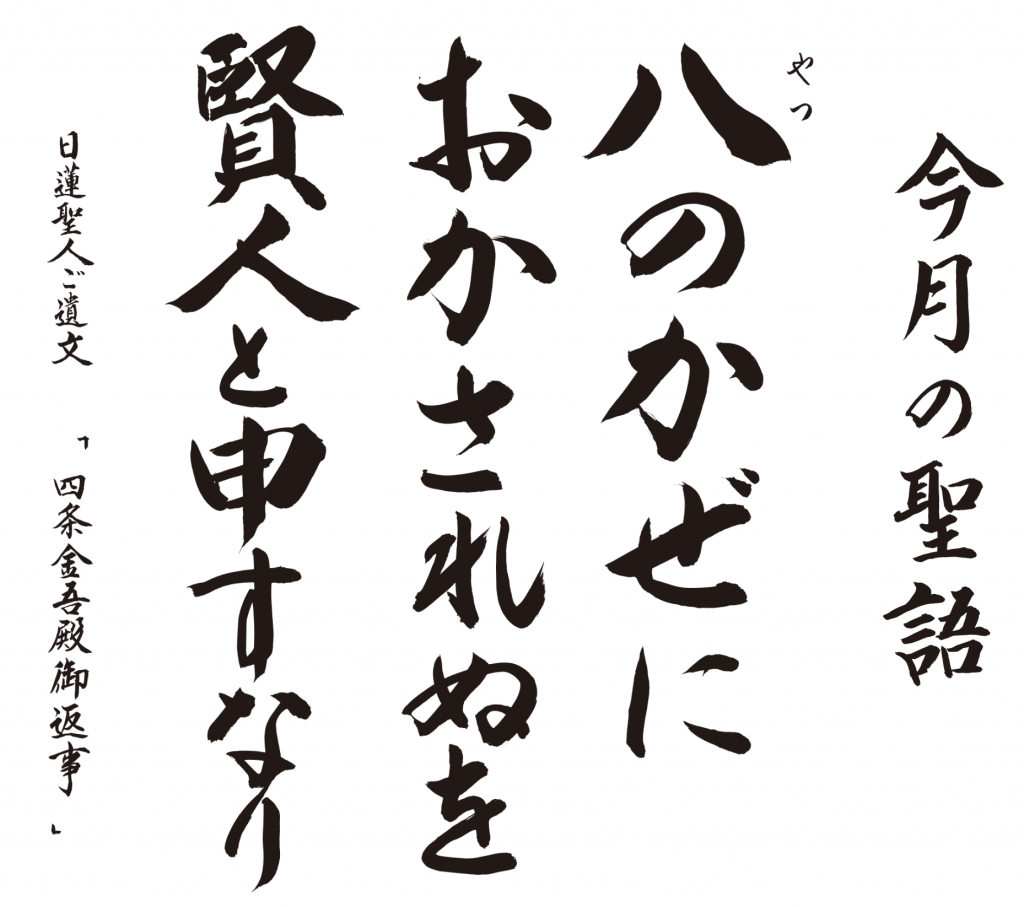 今月の聖語
やつ
八のかぜに
おかされぬを
賢人と申すなり
日蓮聖人ご遺文 「四条金吾殿御返事」